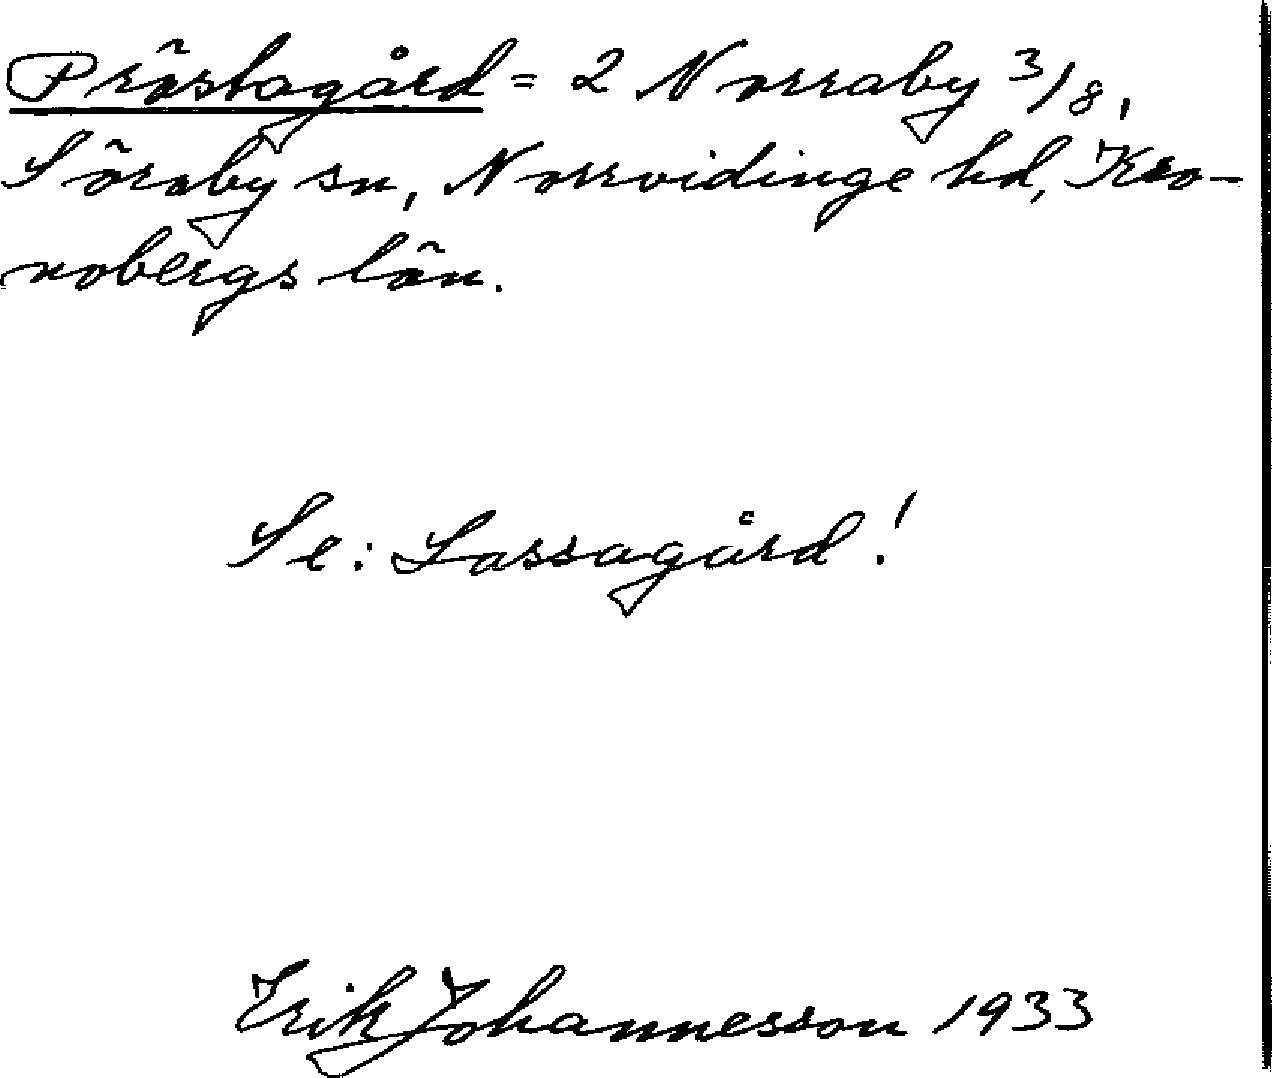 Prästagård = 2 Norraby 3/8,
Söraby sn, Norrvidinge hd, Kro-
nobergs län.
Se: Lassagård!
Erik Johannesson 1933